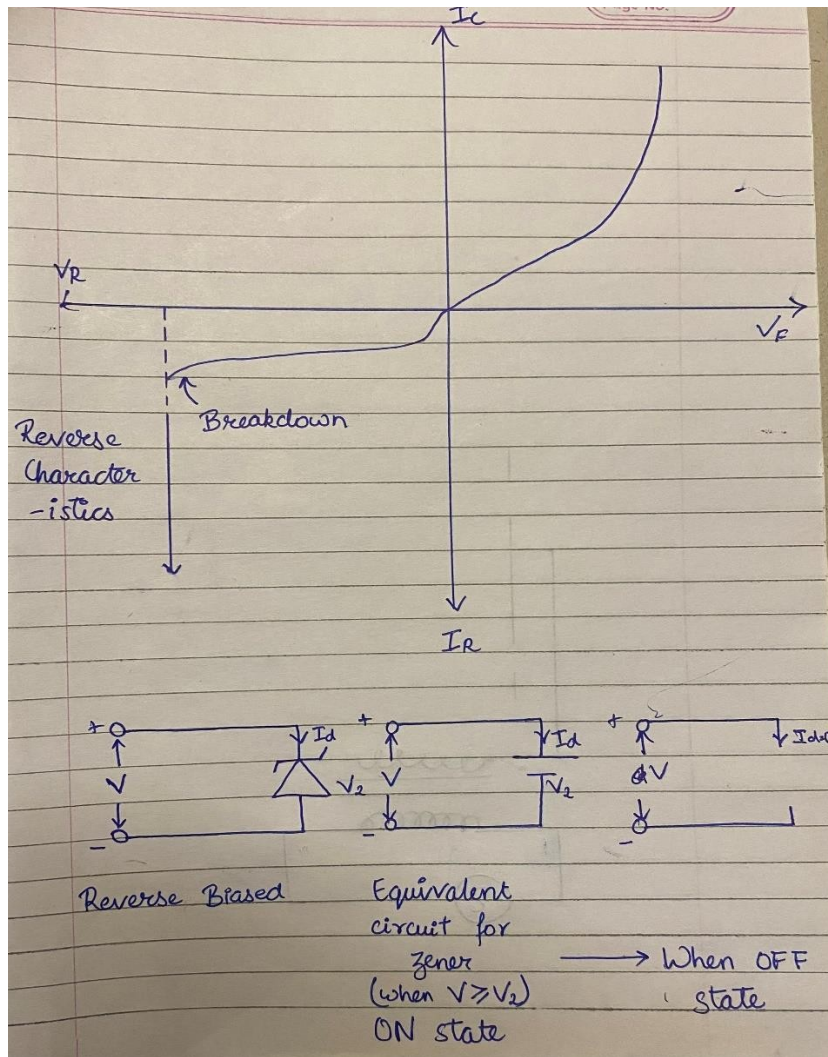 Page No.
IC
VR
VF
Breakdown
Reverse
Character
-istics
IR
+ Id + Id + 2
V V2 V V2 V
- - -
Reverse Biased
Equivalent
circuit for
zener
(when V≥V2)
ON state
→ When OFF
state